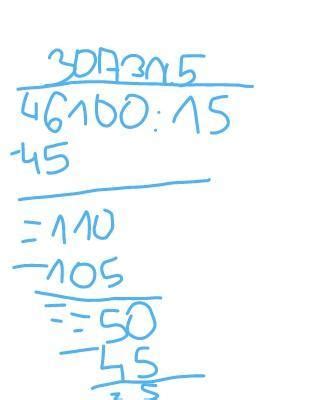 3073r.5
46100:15
-45
=110
-105
==50
-45